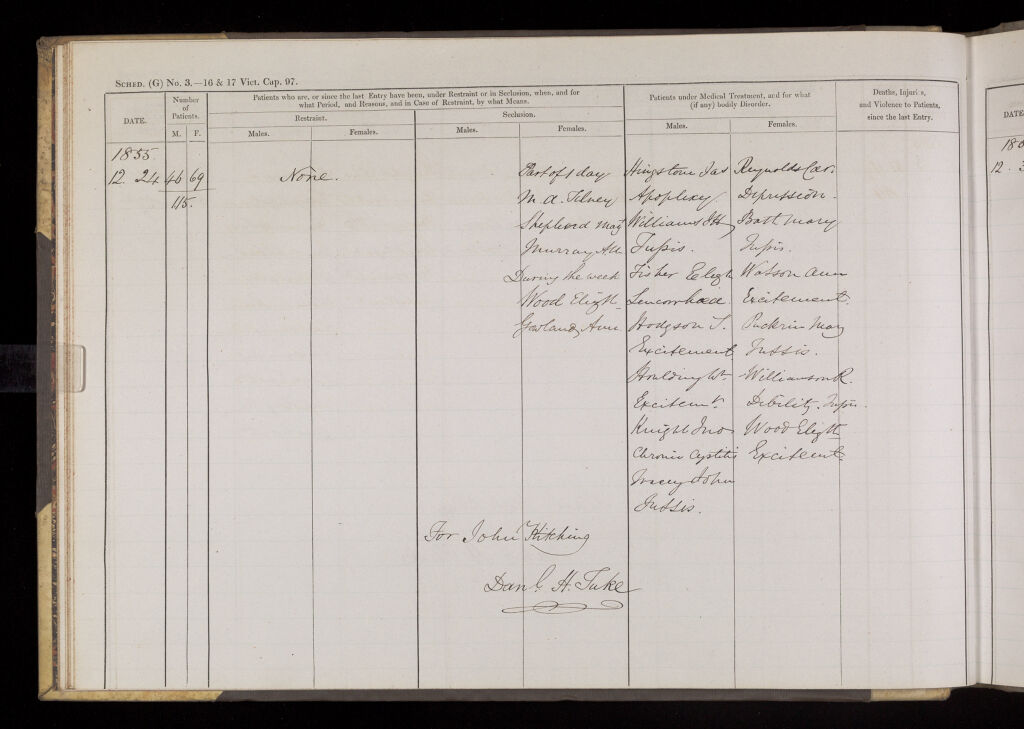 SCHED. (G) No. 3.—16 & 17 Vict. Cap. 97.
DATE.
Number
of
Patients.
M. F.
Patients who are, or since the last Entry have been, under Restraint or in Seclusion, when, and for
what Period, and Reasons, and in Case of Restraint, by what Means.
Restraint.
Males. Females.
Seclusion.
Males. Females.
Patients under Medical Treatment, and for what
(if any) bodily Disorder.
Males. Females.
Deaths, Injuries,
and Violence to Patients,
since the last Entry.
1855
12. 24 46 69
115.
None.
Part of 1 day
M. A. Tilney
Shepherd Magt
Murray
During the week
Wood Elizth
Gowland Ann
Hingstone Jas
Apoplexy
Williams
Tussis.
Fisher Elizth
Leucorrhoea
Hodgson T.
Excitement
Houlding Wm
Excitemt.
Knight Jno
Chronic Cystitis
Tracey John
Tussis.
Reynolds Car.
Depression.
Batt Mary
Tussis.
Watson Ann
Excitement.
Puckrin Mary
Tussis.
Williamson R.
Debility. Tussis.
Wood Elizth
Excitemt.
For John Kitching
Danl. H. Tuke
DATE
12. 3